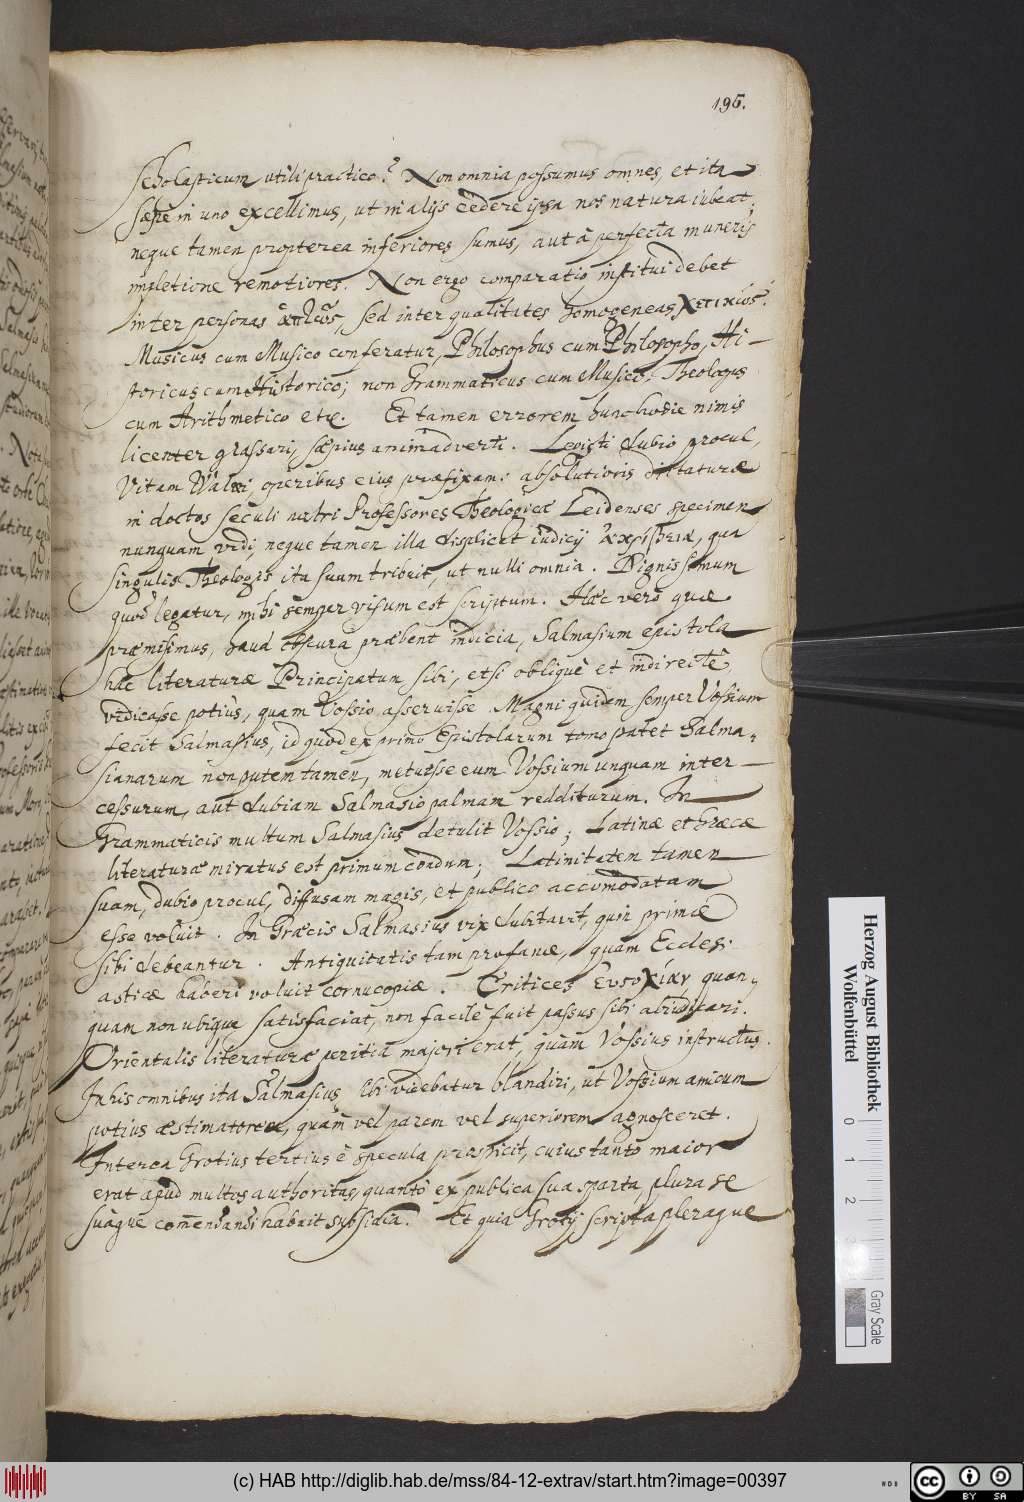 195.
scholasticum utili practico? Non omnia possumus omnes, et ita
sæpè in uno excellimus, ut in alijs cedere ipsa nos natura iubeat,
neque tamen propterea inferiores sumus, aut à perfecta muneris
impletione remotiores. Non ergo comparatio institui debet
inter personas ἁπλῶς, sed inter qualitates homogeneas, σχετικῶς.
Musicus cum Musico conferatur, Philosophus cum Philosopho, Hi-
storicus cum Historico; non Grammaticus cum Musico, Theologus
cum Arithmetico etc. Et tamen errorem hunc hodie nimis
licenter grassari, sæpius animadverti. Legisti dubio procul,
Vitam Walæi, operibus eius præfixam: absolutioris dictaturæ
in doctos seculi nostri Professores Theologicæ Leidenses specimen
nunquam vidi, neque tamen illa displicet iudicij ἀκρίβεια, qua
singulis Theologis ita suam tribuit, ut nulli omnia. Dignissimum
quod legatur, mihi semper visum est scriptum. Hæc verò quæ
præmisimus, haud obscura præbent indicia, Salmasium epistola
hac literaturæ Principatum sibi, etsi obliquè et indirectè,
vendicasse potius, quam Vossio asseruisse. Magni quidem semper Vossium
fecit Salmasius, id quod ex primo Epistolarum tomo patet Salma-
sianarum non putem tamen, metuisse eum Vossium unquam inter-
cessurum, aut dubiam Salmasio palmam redditurum. In
Grammaticis multum Salmasius detulit Vossio; Latinæ et Græcæ
literaturæ miratus est primum condum; Latinitatem tamen
suam, dubio procul, diffusam magis, et publico accomodatam
esse voluit. In Græcis Salmasius vix dubitavit, quin primæ
sibi debeantur. Antiquitatis tam profanæ, quam Ecclesi-
asticæ haberi voluit cornucopiæ. Critices εὐστοχίαν, quan-
quam non ubique satisfaciat, non facilè fuit passus sibi abiudicari.
Orientalis literaturæ peritiâ majori erat, quàm Vossius instructus.
In his omnibus ita Salmasius sibi videbatur blandiri, ut Vossium amicum
potius æstimatorem, quàm vel parem vel superiorem agnosceret.
Interea Grotius tertius è specula prospicit, cuius tantò maior
erat apud multos authoritas, quantò ex publica sua sparta, plura se
suaque commendandi habuit subsidia. Et quia Grotij scripta pleraque
Herzog August Bibliothek
Wolfenbüttel
0 1 2 3
Gray Scale
(c) HAB http://diglib.hab.de/mss/84-12-extrav/start.htm?image=00397
cc BY SA